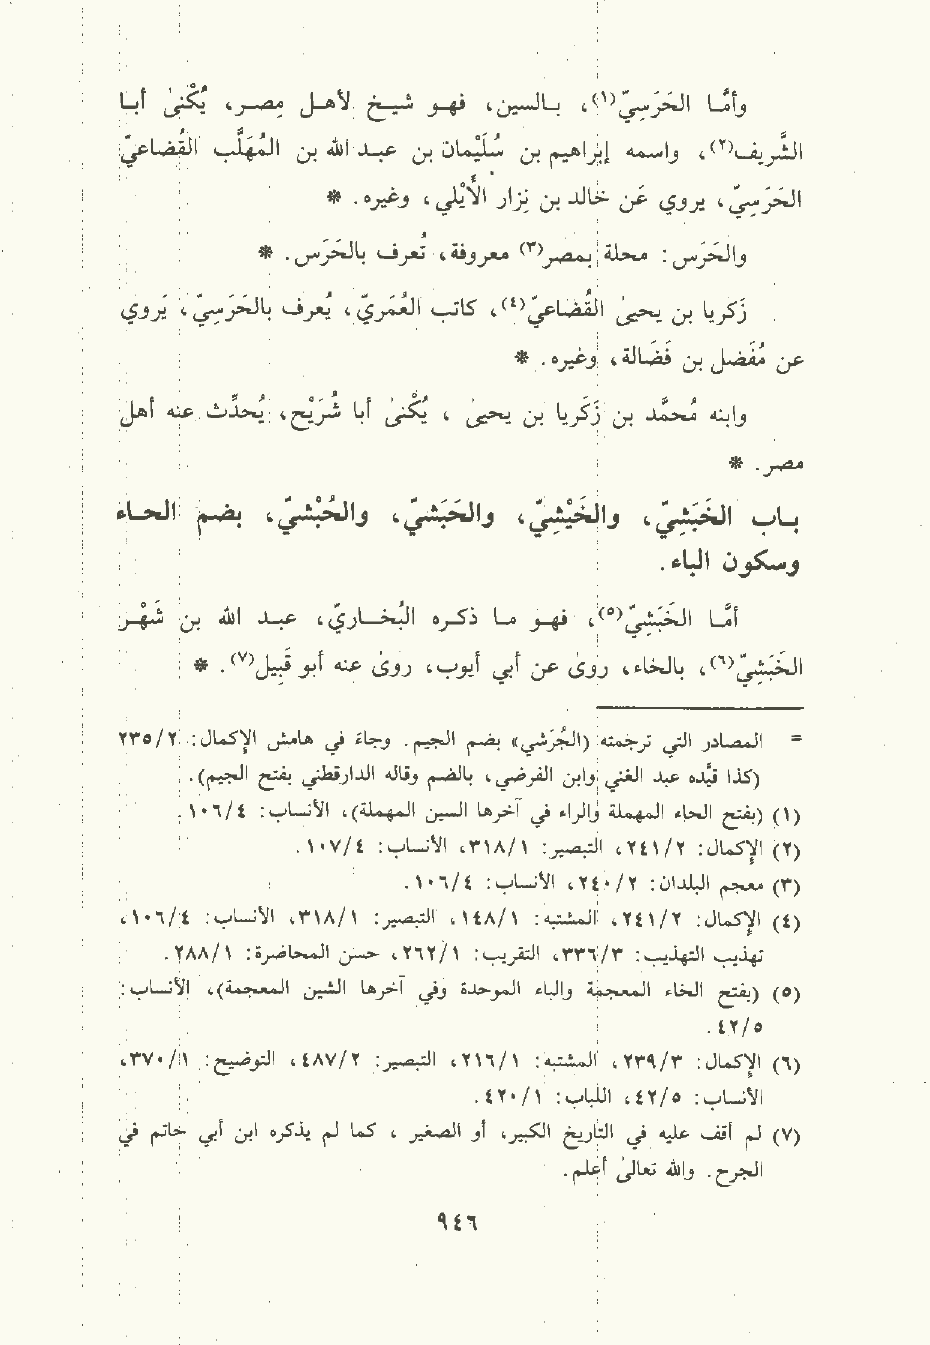 وأمَّا الحَرَسِيّ(١)، بالسين، فهو شيخ لأهل مِصر، يُكْنىٰ أبا
الشَّريف(٢)، واسمه إبراهيم بن سُلَيْمان بن عبد الله بن المُهَلَّب القُضاعيّ
الحَرَسِيّ، يروي عَن خالد بن نِزار الأَيْلي، وغيره. *
والحَرَس: محلة بمصر(٣) معروفة، تُعرف بالحَرَس. *
زَكريا بن يحيىٰ القُضاعيّ(٤)، كاتب العُمَريّ، يُعرف بالحَرَسِيّ، يَروي
عن مُفَضل بن فَضَالة، وغيره. *
وابنه مُحمَّد بن زَكَريا بن يحيىٰ ، يُكْنىٰ أبا شُرَيْح، يُحدِّث عنه أهل
مصر. *
باب الخَبَشِيّ، والخَيْشِيّ، والحَبَشيّ، والحُبْشيّ، بضم الحاء
وسكون الباء.
أمَّا الخَبَشِيّ(٥)، فهو ما ذكره البُخاريّ، عبد الله بن شَهْر
الخَبَشِيّ(٦)، بالخاء، روىٰ عن أبي أيوب، روىٰ عنه أبو قَبِيل(٧). *
= المصادر التي ترجمته (الجُرَشي» بضم الجيم. وجاءَ في هامش الإكمال: ٢٣٥/٢
(كذا قيّده عبد الغني وابن الفرضي، بالضم وقاله الدارقطني بفتح الجيم).
(١) (بفتح الحاء المهملة والراء في آخرها السين المهملة)، الأنساب: ١٠٦/٤.
(٢) الإكمال: ٢٤١/٢، التبصير: ٣١٨/١، الأنساب: ١٠٧/٤.
(٣) معجم البلدان: ٢٤٠/٢، الأنساب: ١٠٦/٤.
(٤) الإكمال: ٢٤١/٢، المشتبه: ١٤٨/١، التبصير: ٣١٨/١، الأنساب: ١٠٦/٤،
تهذيب التهذيب: ٣٣٦/٣، التقريب: ٢٦٢/١، حسن المحاضرة: ٢٨٨/١.
(٥) (بفتح الخاء المعجمة والباء الموحدة وفي آخرها الشين المعجمة)، الأنساب:
٤٢/٥.
(٦) الإكمال: ٢٣٩/٣، المشتبه: ٢١٦/١، التبصير: ٤٨٧/٢، التوضيح: ٣٧٠/١،
الأنساب: ٤٢/٥، اللباب: ٤٢٠/١.
(٧) لم أقف عليه في التاريخ الكبير، أو الصغير ، كما لم يذكره ابن أبي حاتم في
الجرح. والله تعالىٰ أعلم.
٩٤٦